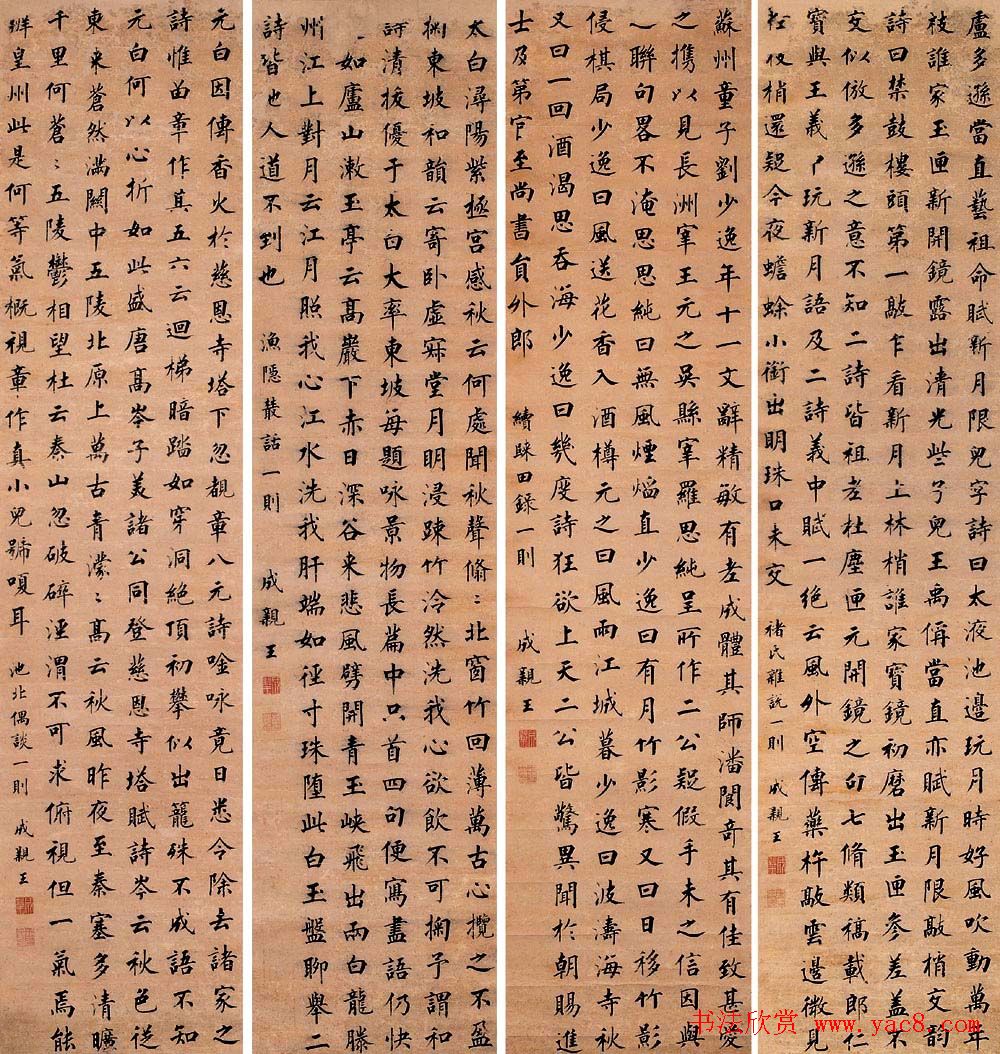 盧多遜當直藝祖命賦新月限兒字詩曰太液池邊玩月時好風吹動萬年
枝誰家玉匣新開鏡露出清光些子兒王禹偁當直亦賦新月限敲梢交韵
詩曰禁鼓樓頭第一敲乍看新月上林梢誰家寶鏡初磨出玉匣參差蓋不
交似倣多遜之意不知二詩皆祖老杜塵匣元開鏡之句七脩類稿載郎仁
寶與王義中玩新月語及二詩義中賦一絕云風外空傳藥杵敲雲邊微見
桂枝梢還疑今夜蟾蜍小銜出明珠口未交
褚氏雜說一則
成親王
蘇州童子劉少逸年十一文辭精敏有老成體其師潘閬奇其有佳致甚愛
之攜以見長洲宰王元之吳縣宰羅思純呈所作二公疑假手未之信因與
聯句畧不淹思思純曰無風煙焰直少逸曰有月竹影寒又曰日移竹影
侵棋局少逸曰風送花香入酒樽元之曰風雨江城暮少逸曰波濤海寺秋
又曰一回酒渴思吞海少逸曰幾度詩狂欲上天二公皆驚異聞於朝賜進
士及第官至尚書員外郎
續睬田錄一則
成親王
太白潯陽紫極宮感秋云何處聞秋聲翛〻北窗竹回薄萬古心攬之不盈
掬東坡和韻云寄卧虛寂堂月明浸疎竹冷然洗我心欲飲不可掬予謂和
詩清拔優于太白大率東坡每題咏景物長篇中只首四句便寫盡語仍快
如廬山漱玉亭云高巖下赤日深谷来悲風劈開青玉峽飛出兩白龍滕
州江上對月云江月照我心江水洗我肝端如徑寸珠墮此白玉盤聊舉二
詩皆也人道不到也
漁隱叢話一則
成親王
元白因傳香火於慈恩寺塔下忽覩章八元詩唫咏竟日悉令除去諸家之
詩惟留章作其五六云迴梯暗踏如穿洞絕頂初攀似出籠殊不成語不知
元白何以心折如此盛唐高岑子美諸公同登慈恩寺塔賦詩岑云秋色從
東来蒼然滿關中五陵北原上萬古青濛〻高云秋風昨夜至秦塞多清曠
千里何蒼〻五陵鬱相望杜云秦山忽破碎涇渭不可求俯視但一氣焉能
辨皇州此是何等氣概視章作真小兒號嗄耳
池北偶談一則
成親王
书法欣赏 www.yac8.com